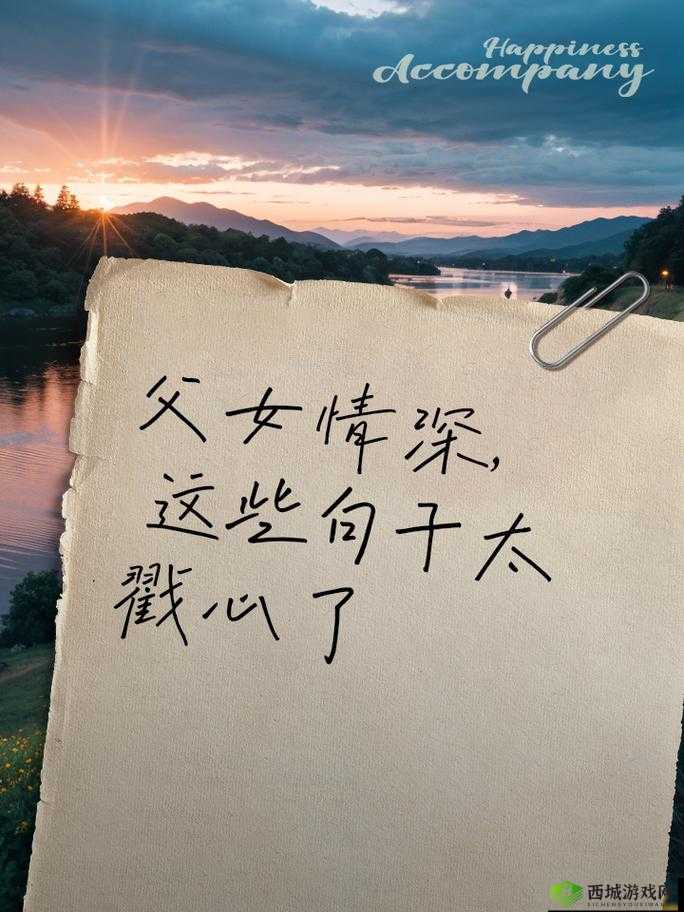 Happiness
Accompany
父女情深,
这些句子太
戳心了
西城游戏网